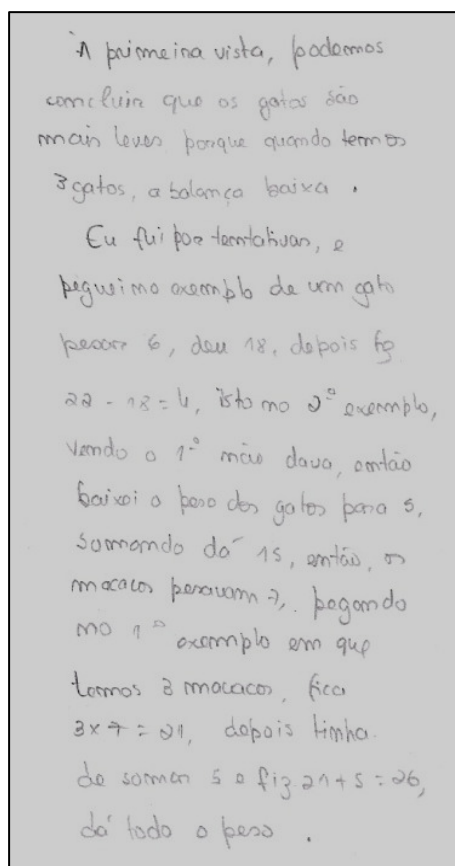 À primeira vista, podemos
concluir que os gatos são
mais leves porque quando temos
3 gatos, a balança baixa.
Eu fui por tentativas, e
peguei no exemplo de um gato
pesar 6, deu 18, depois fiz
22 - 18 = 4, isto no 2º exemplo,
vendo o 1º não dava, então
baixei o peso dos gatos para 5,
somando dá 15, então, os
macacos pesavam 7, pegando
no 1º exemplo em que
temos 3 macacos, fica
3 x 7 = 21, depois tinha
de somar 5 e fiz 21 + 5 = 26,
dá todo o peso.